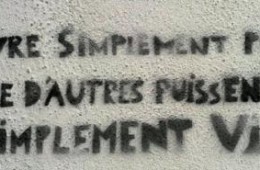 VRE SIMPLEMENT P
E D'AUTRES PUISSEN
IMPLEMENT V